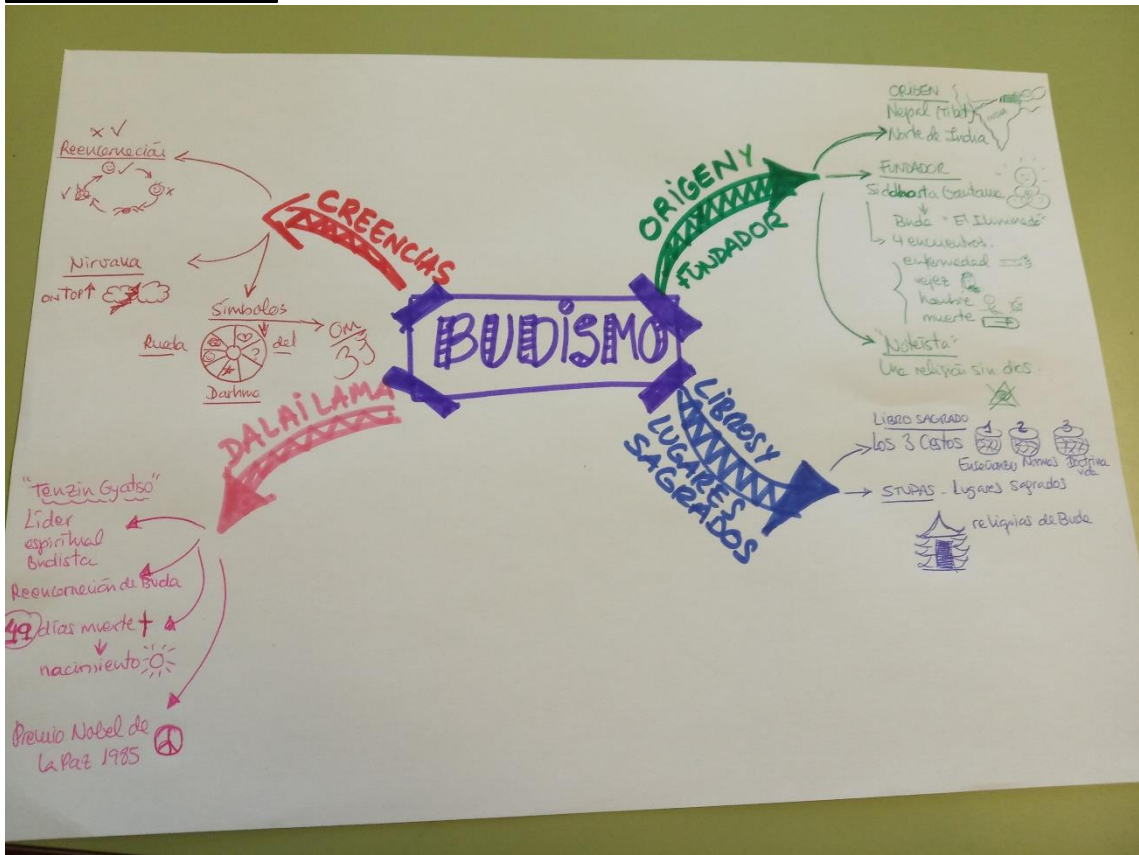 BUDISMO
CREENCIAS
Reencarnación
Nirvana
ON TOP↑
Símbolos
Rueda del
Darhma
OM
ORIGEN Y
FUNDADOR
ORIGEN
Nepal (Tibet)
Norte de India
INDIA
FUNDADOR
Siddharta Gautama
Buda "El Iluminado"
4 encuentros.
enfermedad
vejez
hambre
muerte
"Noteísta"
Una religión sin dios.
LIBROS Y
LUGARES
SAGRADOS
LIBRO SAGRADO
Los 3 Cestos
1 2 3
Enseñanzas Normas Doctrina
vida
STUPAS - Lugares sagrados
reliquias de Buda
DALAI LAMA
"Tenzin Gyatso"
Líder
espiritual
Budista
Reencarnación de Buda
49 días muerte
nacimiento
Premio Nobel de
la Paz 1985